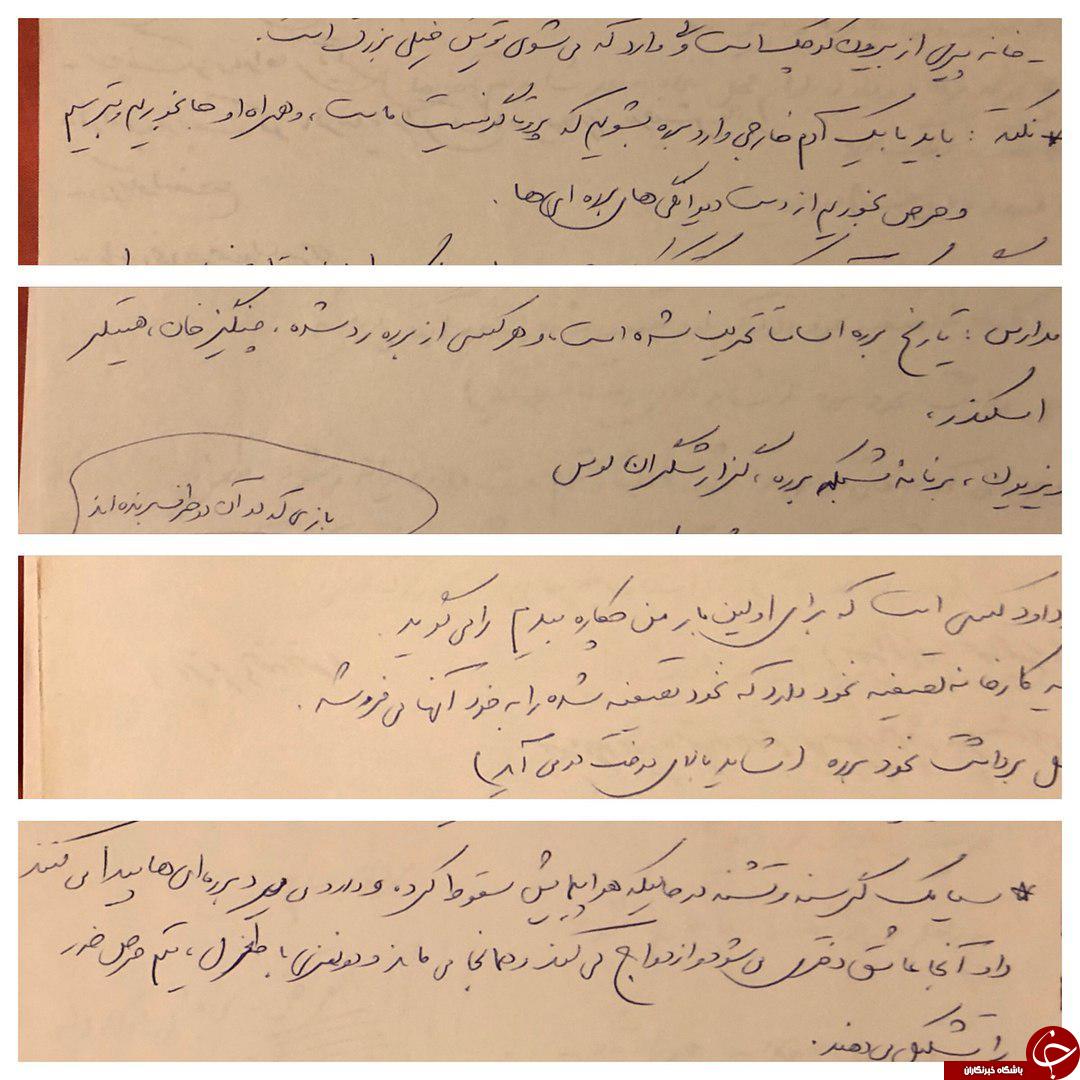 - خانه پدری از بیرون کوچک است ولی وارد که می شوی تویش خیلی بزرگ است.
* نکته : باید با یک آدم خارجی وارد برره بشویم که پروتاگونیست ماست ، و همراه او جا بخوریم و بترسیم
و حرص بخوریم از دست دیوانگی های برره ای ها .
مدارس : تاریخ برره اساسا تحریف شده است ، و هر کسی از برره رد شده ، چنگیز خان ، هیتلر
اسکندر ،
تلویزیون ، برنامه شبکه برره ، گزارشگران لوس
بازی که در آن دو طرف برنده اند
داود کسی است که برای اولین بار من چکاره بیدم را می گوید .
یه کارخانه تصفیه نخود دارد که نخود تصفیه شده را به خود آنها می فروشه .
برداشت نخود برره (شاید بالای درخت در می آید)
* سیامک گرسنه و تشنه در حالیکه هواپیمایش سقوط کرده و دارد می میرد برره ای ها پیدا می کنند
و او آنجا عاشق دختری می شود و ازدواج می کند و همانجا می ماند و دو نفری با طغرل ، تیم حرص خور
را تشکیل می دهند .
باشگاه خبرنگاران